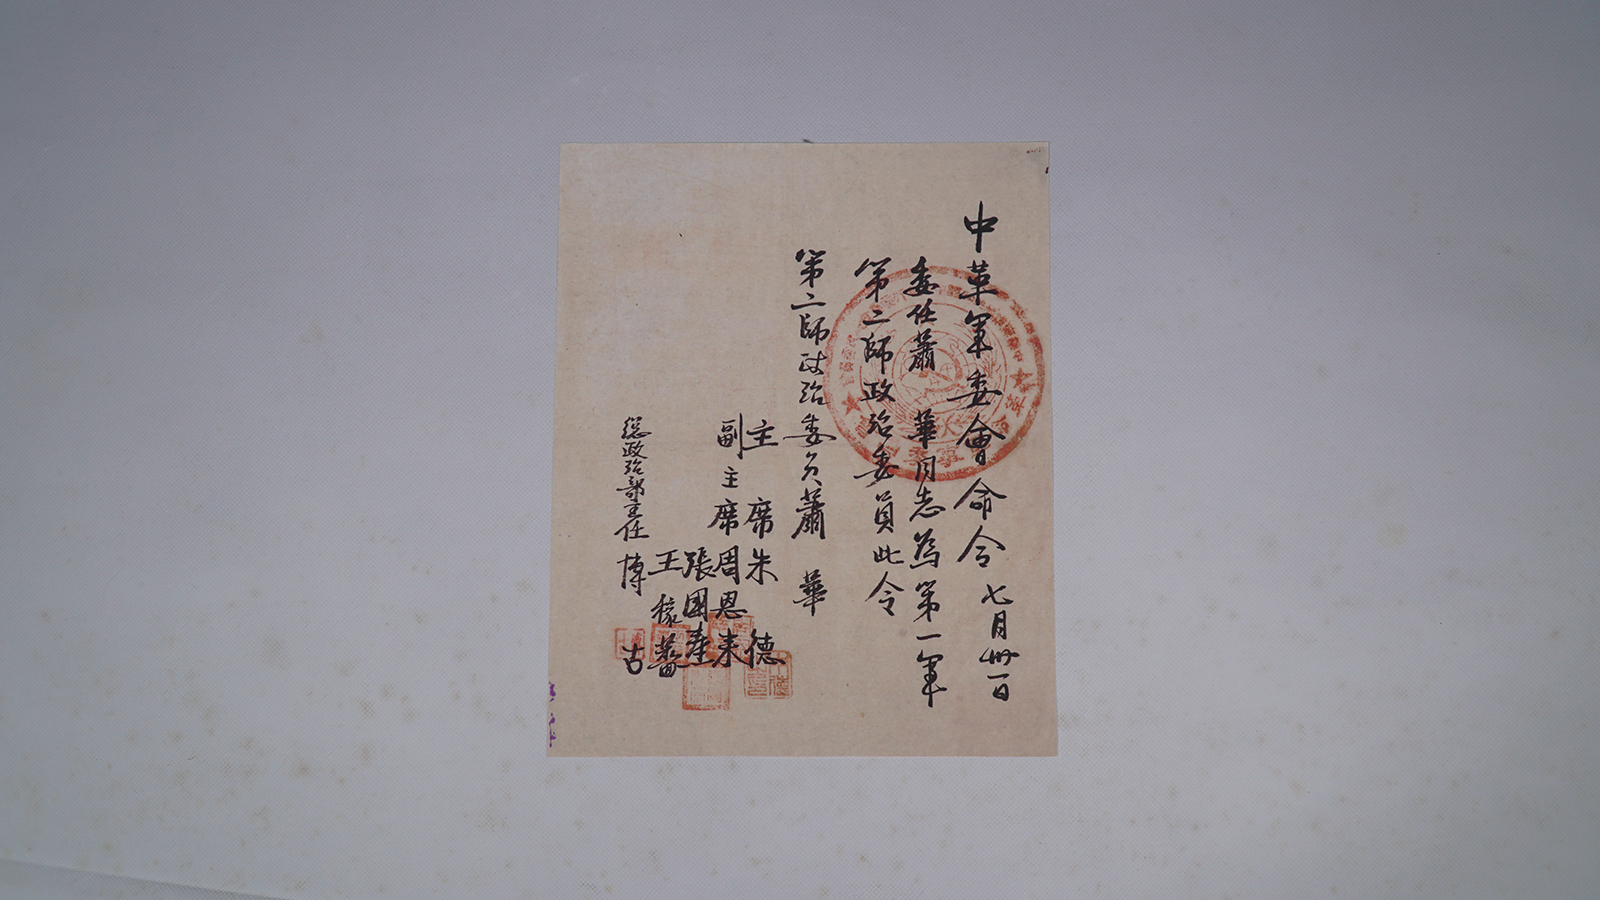 中革軍委會命令 七月卅一日
委任蕭 華同志為第一軍
第二師政治委員此令
第二師政治委員蕭 華
主 席朱 德
副主席周恩來
張國燾
王稼薔
總政治部主任 博 古